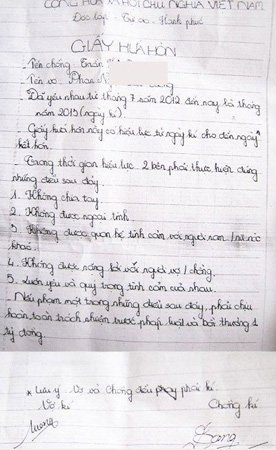 CỘNG HÒA XÃ HỘI CHỦ NGHĨA VIỆT NAM
Độc lập - Tự do - Hạnh phúc
GIẤY HỨA HÔN
- Tên chồng: Trần
- Tên vợ: Phan
- Đã yêu nhau từ tháng 7 năm 2012 đến nay là tháng
năm 2013 (ngày kí).
- Giấy hứa hôn này có hiệu lực từ ngày kí cho đến ngày
kết hôn.
- Trong thời gian hiệu lực 2 bên phải thực hiện đúng
những điều sau đây
1. Không chia tay
2. Không được ngoại tình
3. Không được quan hệ tình cảm với người nam / nữ nào
khác
4. Không được nóng lời với người vợ / chồng.
5. Luôn yêu và quý trọng tình cảm của nhau.
- Nếu phạm một trong những điều sau đây, phải chịu
hoàn toàn trách nhiệm trước pháp luật và bồi thường 1
tỷ đồng.
* Lưu ý: Vợ và Chồng đều phải kí.
Vợ kí Chồng kí